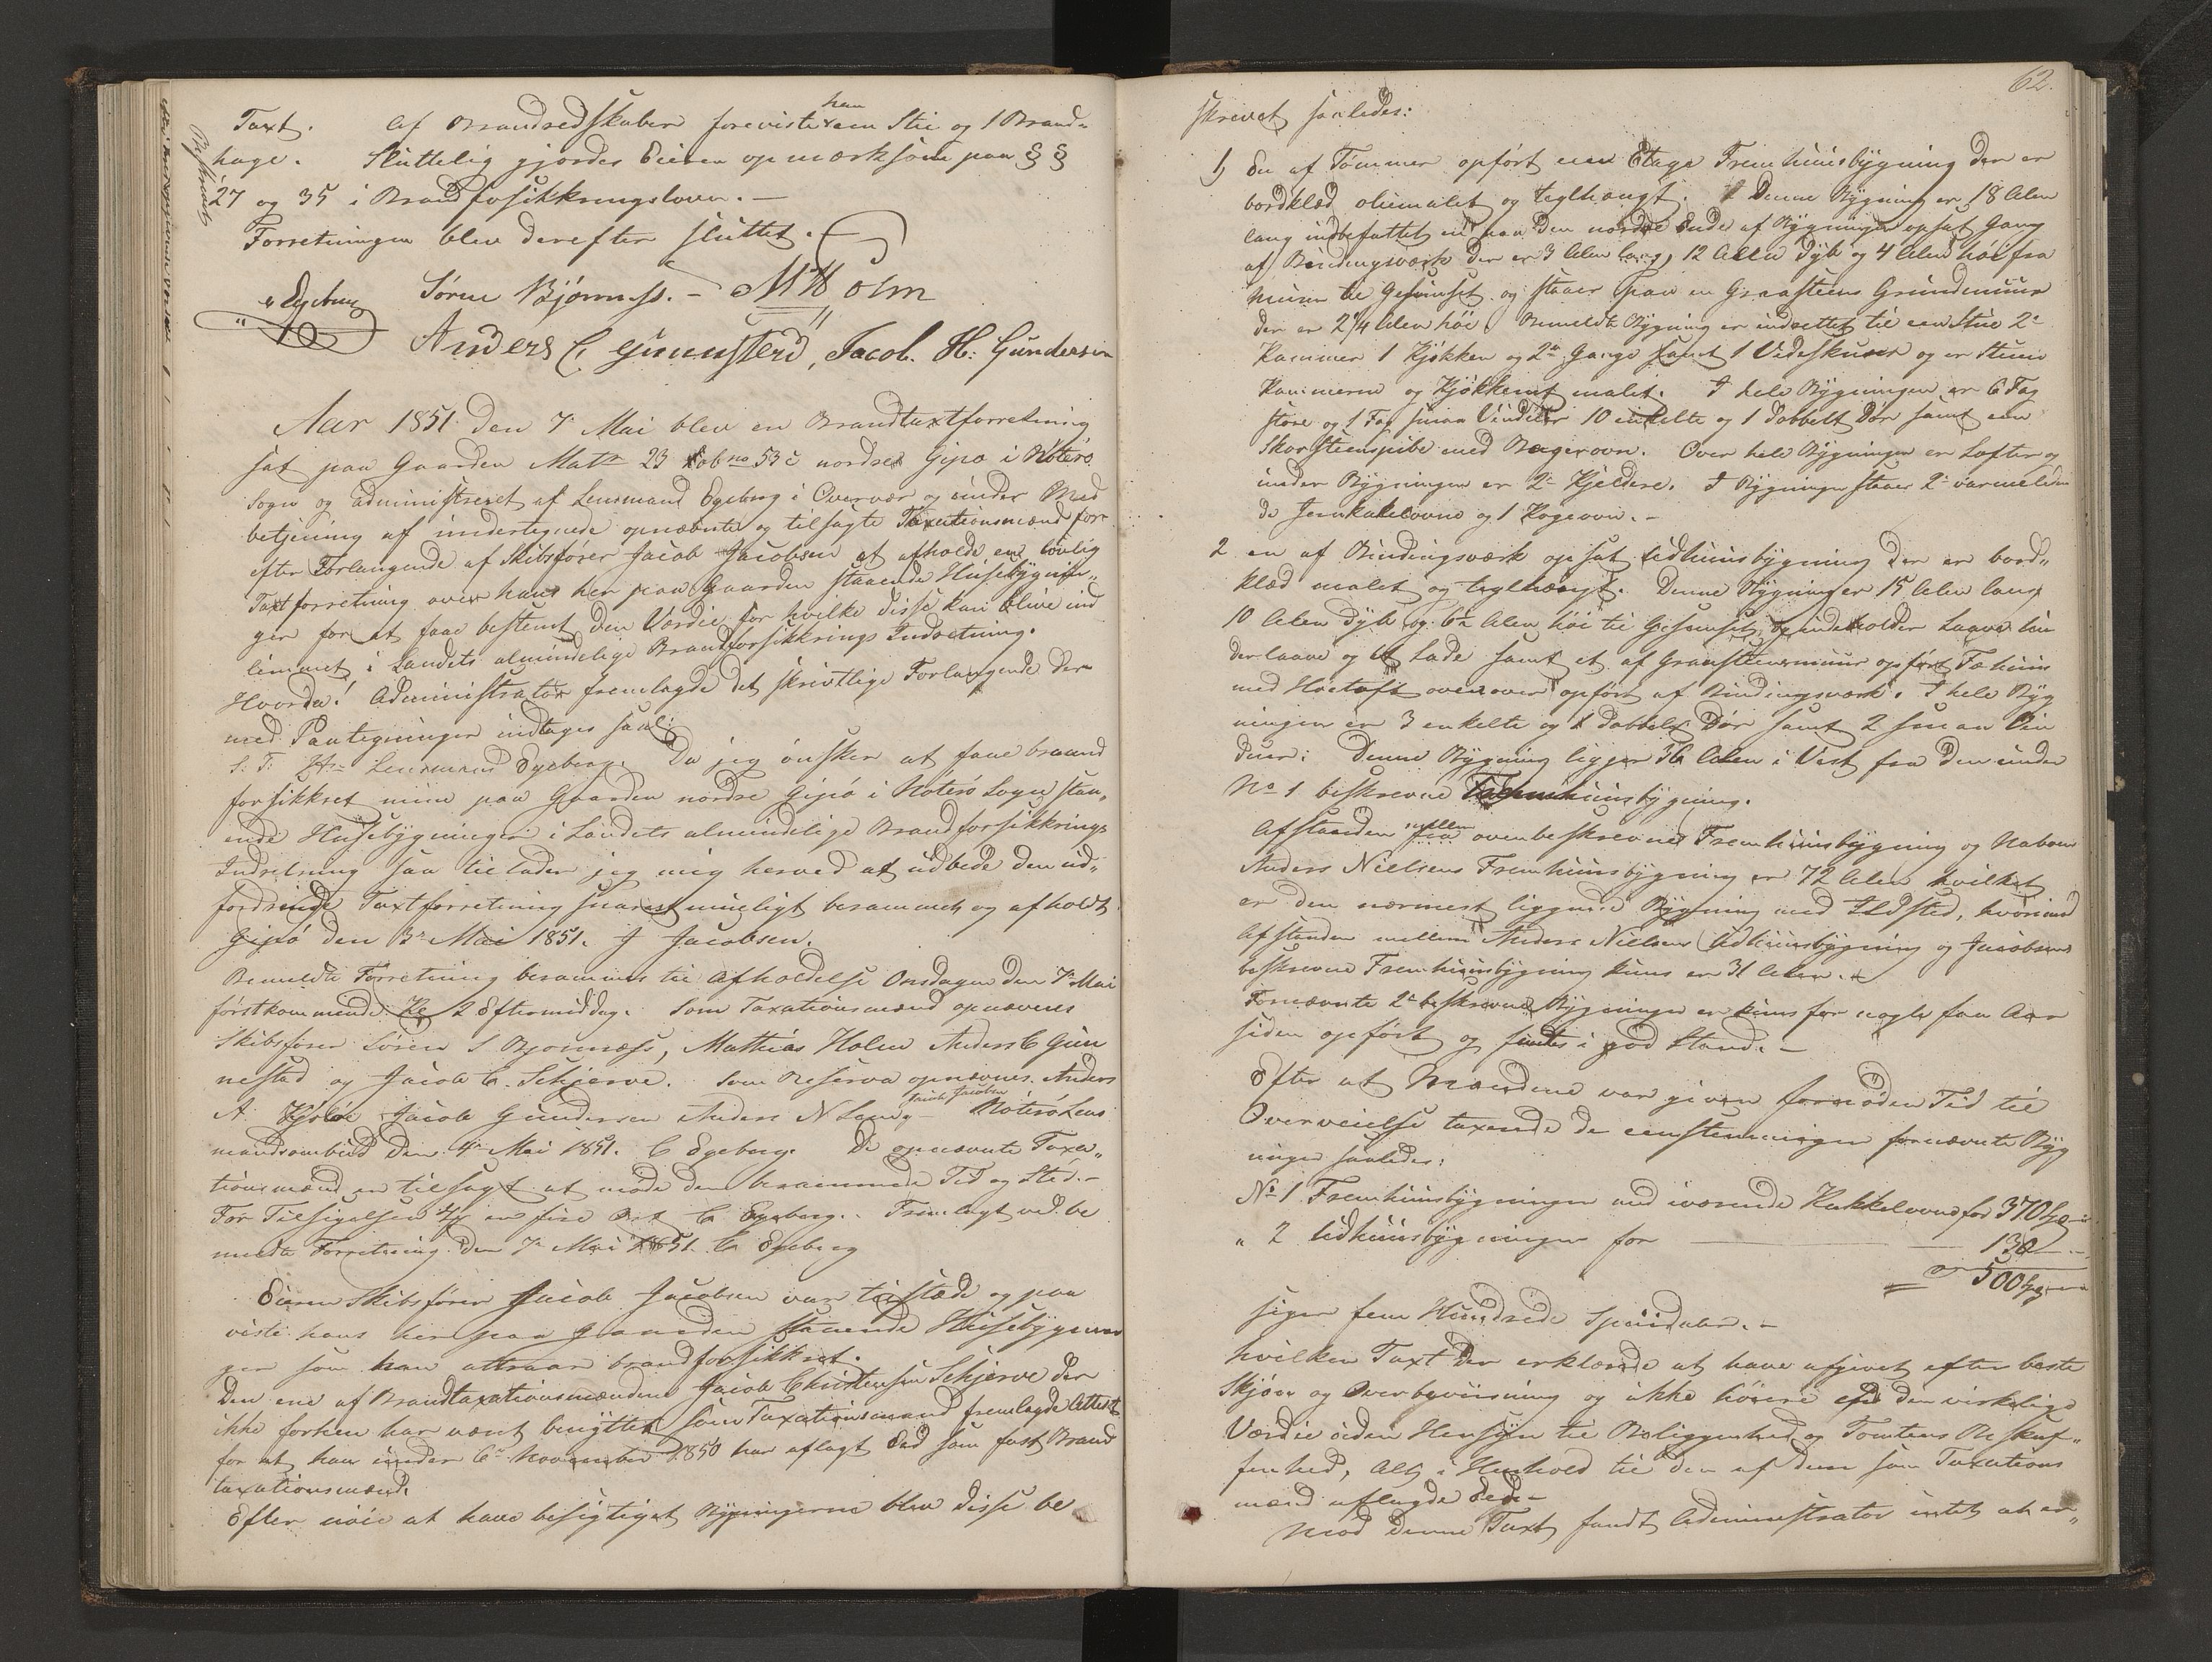 Taxt. Af Brandredskaber foreviste han een Stie og 1 Brand-
hage. Sluttelig gjordes Eieren opmærksom paa § §
27 og 35 i Brandforsikkringsloven. —
Forretningen blev derefter sluttet. —
Egeberg Søren Bjørness. - M Holm
Anders C. Gunnestad, Jacob. H: Gundersen
Aar 1851 den 7de Mai blev en Brandtaxtforretning
sat paa Gaarden Matr 23 Løbno 53 c nordre Gipø i Nøterø
Sogn og administreret af Lensmand Egeberg i Overvær og under Med
betjening af undertegnede opnævnte og tilsagte Taxationsmænd for
efter Forlangende af Skibsfører Jacob Jacobsen at afholde en lovlig
Taxtforretning over hans her paa Gaarden staaende Huusbygnin„
ger for at faae bestemt den Værdie for hvilke disse kan blive ind
lemmet i Landets almindelige Brandforsikkrings Indretning.
Hvorda! Administrator fremlagde det skrivtlige Forlangende der
med Paategninger indtages saal:
S. T. Hr Lensmand Egeberg. Da jeg ønsker at faae braand
forsikkret mine paa Gaarden nordre Gipø i Nøterø Sogn staa„
ende Huusebygninger i Landets almindelige Brandforsikkrings
Indretning saa tillader jeg mig herved at udbede den ud„
fordrende Taxtforretning snarest mueligt berammet og afholdt
Gipø den 3de Mai 1851. J Jacobsen.
Bemeldte Forretning berammes til Afholdelse Onsdagen den 7de Mai
førstkommende Kl 2 Eftermiddag. Som Taxationsmænd opnævnes
Skibsfører Søren S Bjønnæss, Mathias Holm Anders C Gun
nestad og Jacob C. Schjerve. Som Reserva opnævnes Anders
A. Jacob Gundersen Anders N Jacob Jacobs Nøterø Lens
mandsombud den 4de Mai 1851. C Egeberg. De opnævnte Taxa„
tionsmænd er tilsagt at møde den berammede Tid og Sted. -
For Tilsigelsen er fire Ort C Egeberg. Fremlagt ved be
meldte Forretning den 7de Mai 1851. C Egeberg
Eieren Skibsfører Jacob Jacobsen var tilstæde og paa
viste hans her paa Gaarden staaende Huusebygnin
ger som han attraar brandforsikkret.
Den ene af Brandtaxationsmændene Jacob Christensen Schjerve der
ikke forhen har været benyttet som Taxationsmand fremlagde Attest
for at han under 6te November 1850 har aflagt Eed som fast Brand
taxationsmand.
Efter nøie at have besigtiget Bygningerne blev disse be
62.
skrevet saaledes:
1) En af Tømmer opført een Etage Fremhuusbygning der er
bordklæd oliemalet og teglhængt. Denne Bygning er 18 Alen
lang indbefattet en paa den nordre Ende af Bygningen opsat Gang
af Bindingsværk der er 3 Alen lang, 12 Alen dyb og 4 Alen høi fra
Muren til Gesimset og staaer paa en Graasteens Grundmuur
der er 2 1/4 Alen høi. Bemeldte Bygning er indrettet til een Stue 2de
Kammer 1 Kjøkken og 2de Gange samt 1 Vedeskuur og er Stuen
Kammerne og Kjøkkenet malet. I hele Bygningen er 6 Fag
store og 1 Fag smaa Vinduer 10 enkelte og 1 dobbelt Dør samt een
Skorsteenspibe med Bagerovn. Over hele Bygningen er Lofter og
under Bygningen er 2de Kjeldere. I Bygningen staaer 2de varmelden
de Jernkakelovne og 1 Kogeovn. -
2 en af Bindingsværk opsat Udhuusbygning der er bord„
klæd malet og teglhængt. Denne Bygning er 15 Alen lang
10 Alen dyb og 6 1/2 Alen høi til Gesimset, og indeholder Laave Un
derlaave og et Lade samt et af Graasteensmuur opført Fæhuus
med Høeloft ovenover opført af Bindingsværk. I hele Byg
ningen er 3 enkelte og 1 dobbelt Dør samt 2 smaa Vin
duer: Denne Bygning ligger 36 Alen i Vest fra den under
No 1 beskrevne Fremhuusbygning.
Afstanden mellem ovenbeskrevne Fremhuusbygning og Naboen
Anders Nielsens Fremhuusbygning er 72 Alen hvilket
er den nærmest liggende Bygning med Ildsted, hvorimod
Afstanden mellem Anders Nielsens Udhuusbygning og Jacobsens
beskrevne Fremhuusbygning kuns er 31 Alen. -
Fornævnte 2de beskrevne Bygninger er kuns for nogle faa Aar
siden opført og findes i god Stand. -
Efter at Mændene var given fornøden Tid til
Overveielse taxerede de eenstemmigen fornævnte Byg
ninger saaledes:
No 1 Fremhuusbygningen med iværende Kakkelovne for 370
" 2 Udhuusbygningen for — 130 —
= 500
siger fem Hundrede Speciedaler. -
hvilken Taxt de erklærede at have afgivet efter bedste
Skjøn og Overbeviisning og ikke høiere end den virkelige
Værdie uden Hensyn til Beliggenhed og Tomtens Beskaf„
fenhed, Alt i Henhold til den af dem som Taxations
mænd aflagde Eed. -
Mod denne Taxt fandt Administrator intet at er„